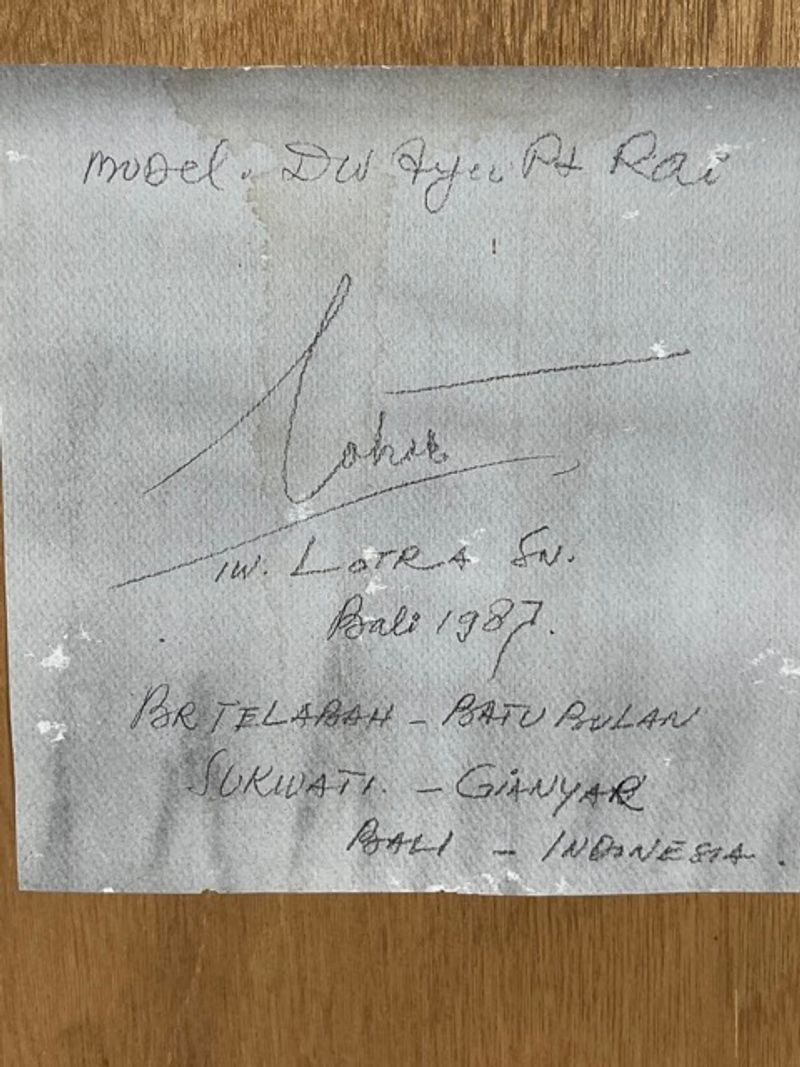 model. DW Ayu Pt Rai
IW. LOTRA SN.
Bali 1987.
BR TELABAH - BATUBULAN
SUKWATI. - GIANYAR
BALI - INDONESIA.